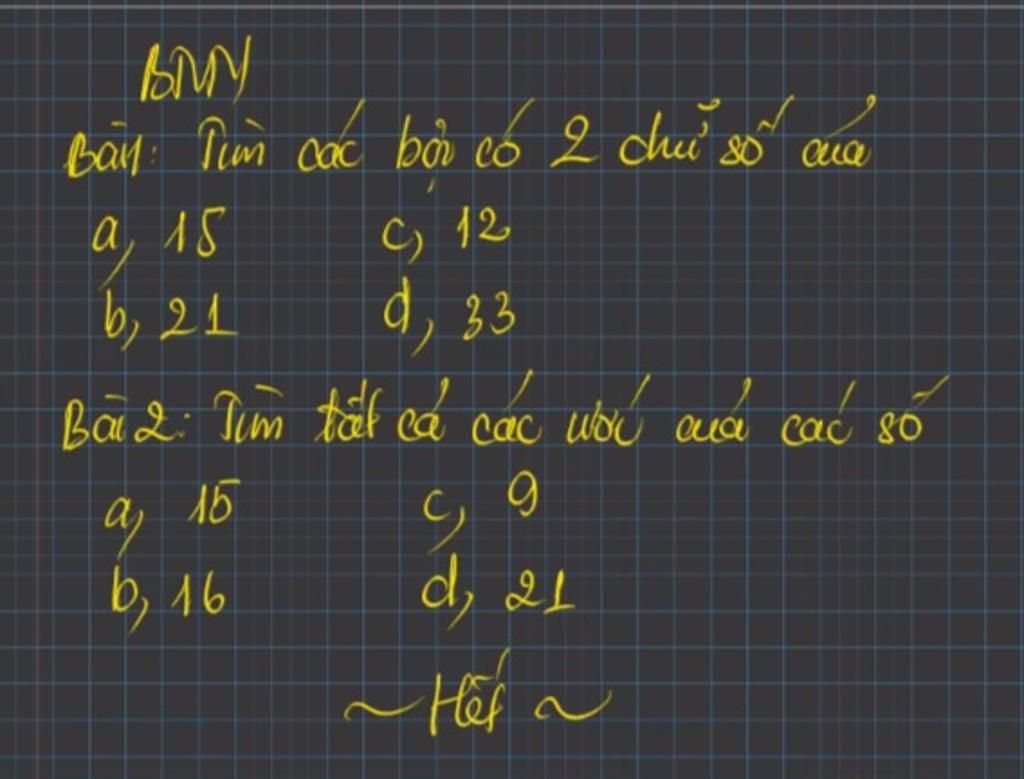 BTVN
Bài 1: Tìm các bội có 2 chữ số của
a, 15 c, 12
b, 21 d, 33
Bài 2: Tìm tất cả các ước của các số
a, 15 c, 9
b, 16 d, 21
~ Hết ~